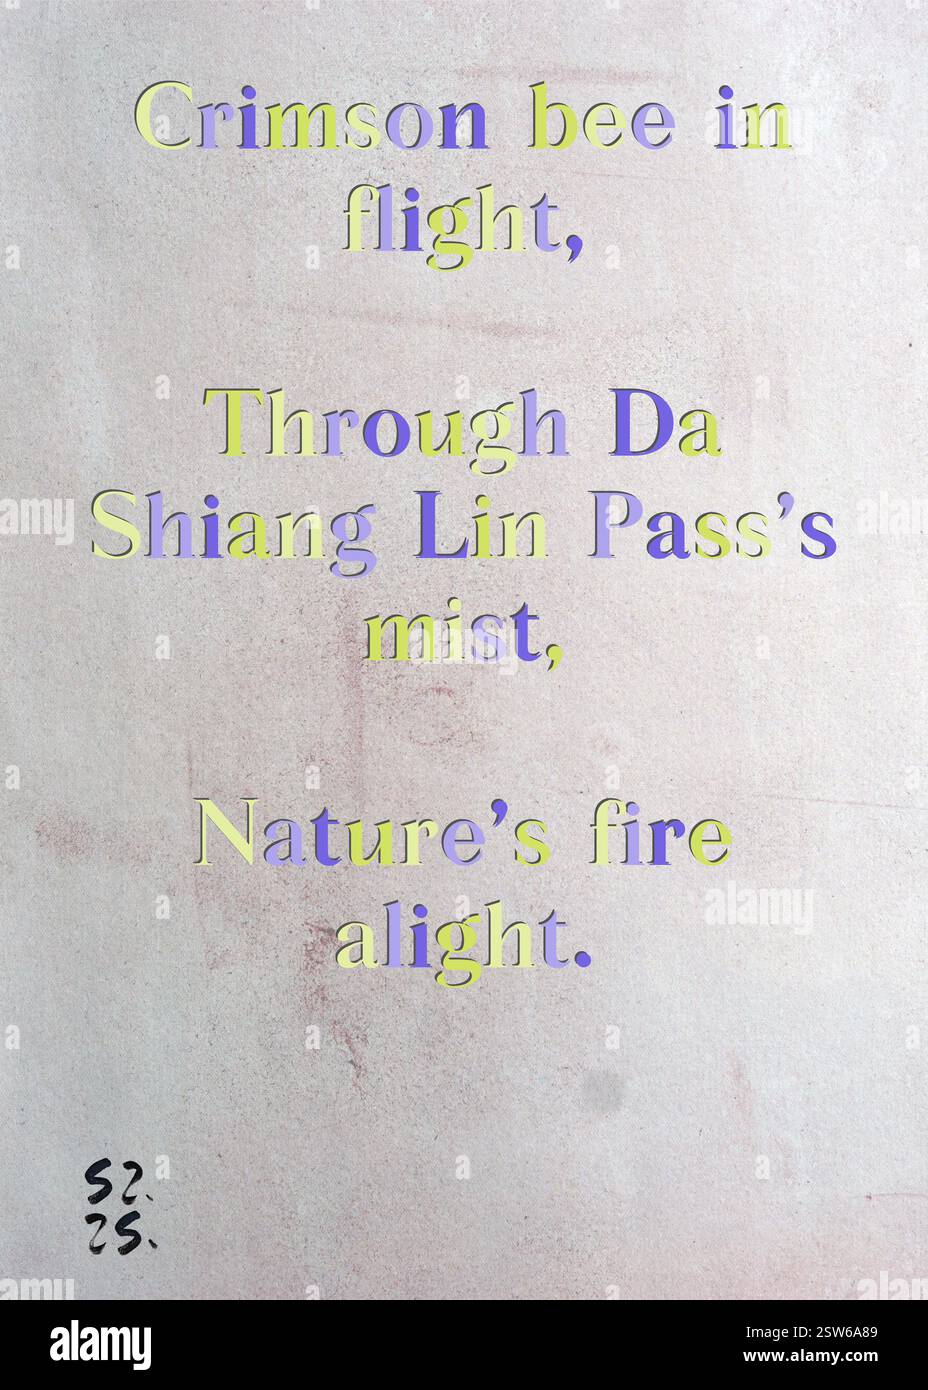 Crimson bee in
flight,
Through Da
Shiang Lin Pass’s
mist,
Nature’s fire
alight.
SZ.
25.
alamy
Image ID: 2SW6A89
www.alamy.com